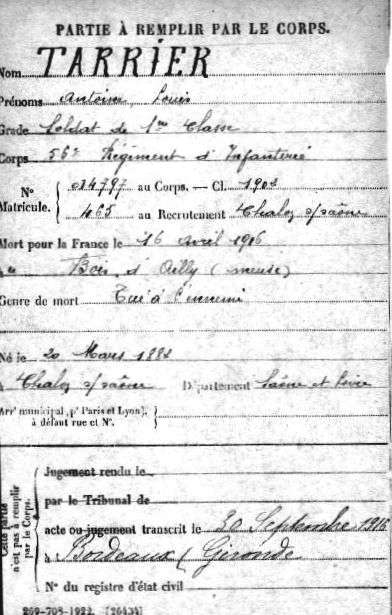 PARTIE À REMPLIR PAR LE CORPS.
Nom TARRIER
Prénoms Antoine Louis
Grade Soldat de 1re Classe
Corps 56e Régiment d'Infanterie
N° Matricule. 014797 au Corps. — Cl. 1902
465 au Recrutement Chalon s/saône
Mort pour la France le 16 avril 1916
à Bois d'Ailly (meuse)
Genre de mort Tué à l'ennemi
Né le 20 Mars 1882
à Chalon s/saône Département Saône et Loire
Arrt municipal (pr Paris et Lyon), à défaut rue et N°.
Cette partie n'est pas à remplir par le Corps.
Jugement rendu le
par le Tribunal de
acte ou jugement transcrit le 20 Septembre 1916
à Bordeaux (Gironde
N° du registre d'état civil
269-708-1922. [26434]